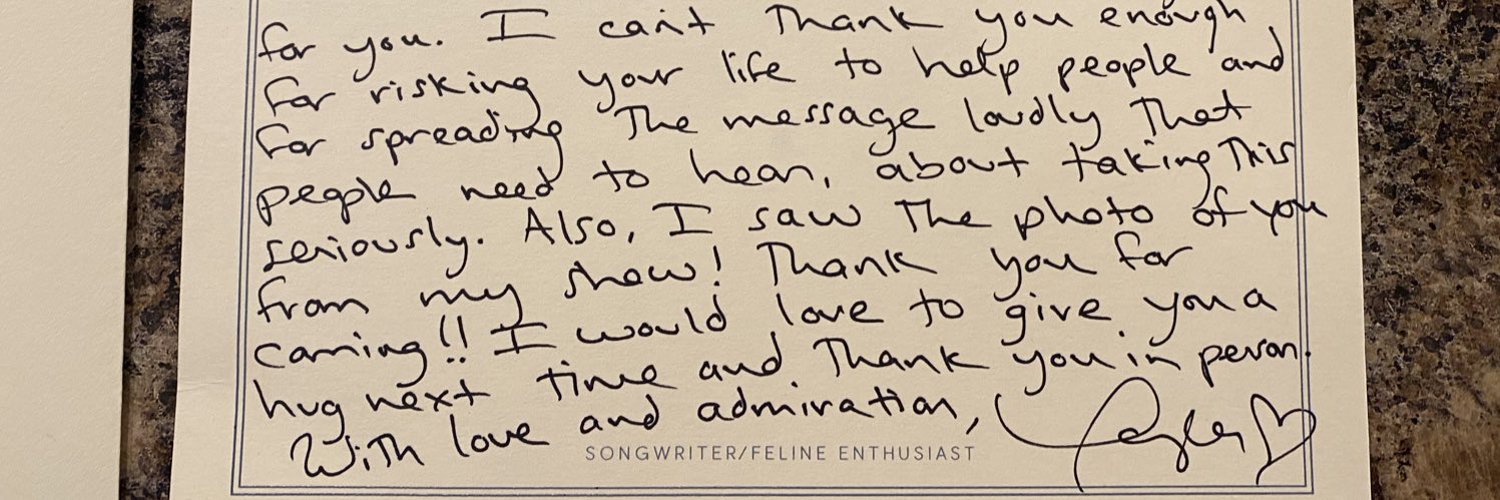 for you. I can't thank you enough
for risking your life to help people and
for spreading the message loudly that
people need to hear, about taking this
seriously. Also, I saw the photo of you
from my show! Thank you for
coming!! I would love to give you a
hug next time and thank you in person.
With love and admiration,
Taylor
SONGWRITER/FELINE ENTHUSIAST